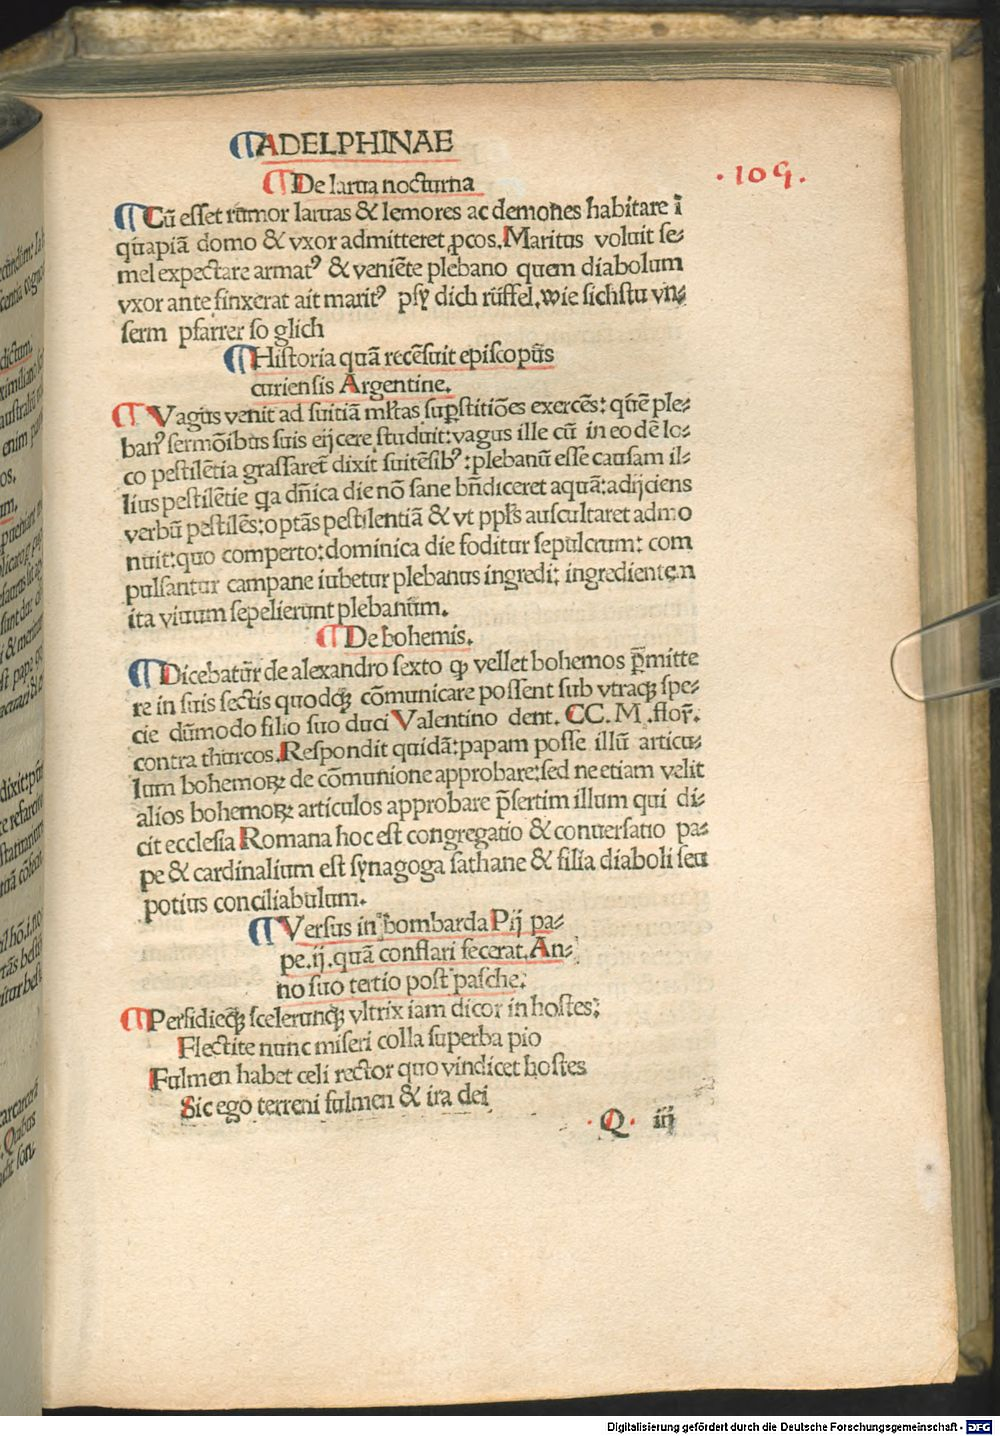 ¶ADELPHINAE
.109.
¶De larua nocturna
¶Cū esset rumor laruas & lemores ac demones habitare ī
quapiā domo & vxor admitteret ꝓcos. Maritus voluit se⸗
mel expectare armatꝰ & veniēte plebano quem diabolum
vxor ante finxerat ait maritꝰ psy dich rüffel, wie sichstu vn⸗
serm pfarrer so glich
¶Historia quā recēsuit episcopus
curiensis Argentine.
¶Vagus venit ad suitiā ml̄tas suꝑstitiōes exercēs: quē ple⸗
banꝰ sermōibus suis eijcere studuit: vagus ille cū in eo dē lo⸗
co pestilētia grassaret̄ dixit suitēsibꝰ: plebanū esse causam il⸗
lius pestilētie qa dn̄ica die nō sane bn̄diceret aquā: adijciens
verbū pestilēs: optās pestilentiā & vt ppl̄s auscultaret admo
nuit: quo comperto: dominica die foditur sepulcrum: com
pulsantur campane iubetur plebanus ingredi: ingredientem
ita viuum sepelierunt plebanum.
¶De bohemis.
¶Dicebatur de alexandro sexto ꝙ vellet bohemos p̄mitte
re in suis sectis quodqꝫ cōmunicare possent sub vtraqꝫ spe⸗
cie dūmodo filio suo duci Valentino dent. CC. M .flor̄.
contra thurcos. Respondit quidā: papam posse illū articu⸗
lum bohemoꝝ de cōmunione approbare: sed ne etiam velit
alios bohemoꝝ articulos approbare p̄sertim illum qui di⸗
cit ecclesia Romana hoc est congregatio & conuersatio pa⸗
pe & cardinalium est synagoga sathane & filia diaboli seu
potius conciliabulum.
¶Versus in bombarda Pij pa⸗
pe .ij. quā conflari fecerat. An⸗
no suo tertio post pasche:
¶Persidieqꝫ scelerunqꝫ vltrix iam dicor in hostes:
Flectite nunc miseri colla superba pio
Fulmen habet celi rector quo vindicet hostes
Sic ego terreni fulmen & ira dei
. Q . iij
Digitalisierung gefördert durch die Deutsche Forschungsgemeinschaft - DFG